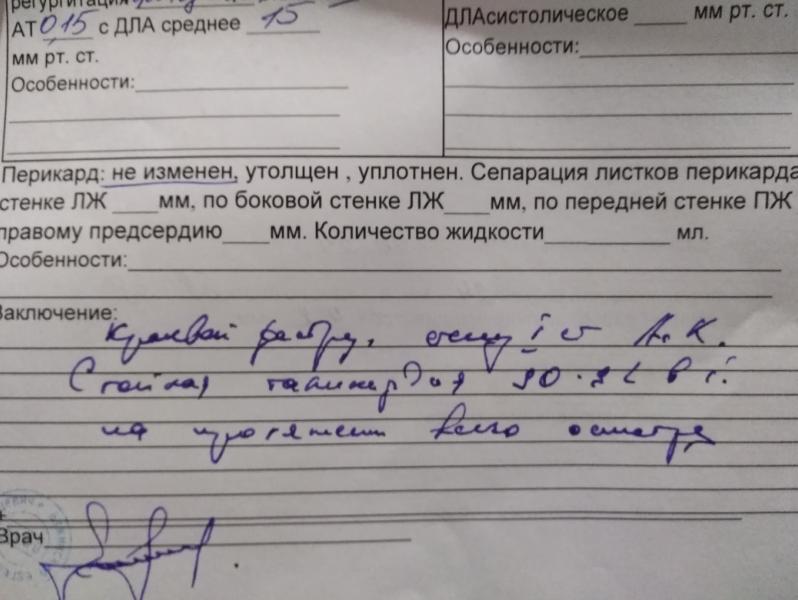 регургитация
АТ 015 с ДЛА среднее 15
мм рт. ст.
Особенности:
ДЛАсистолическое ____ мм рт. ст.
Особенности:
Перикард: не изменен, утолщен , уплотнен. Сепарация листков перикарда
стенке ЛЖ ____мм, по боковой стенке ЛЖ____мм, по передней стенке ПЖ
правому предсердию____мм. Количество жидкости__________ мл.
Особенности:
Заключение:
Краевой
Стойкая тахикардия 90
на протяжении всего осмотра
Врач